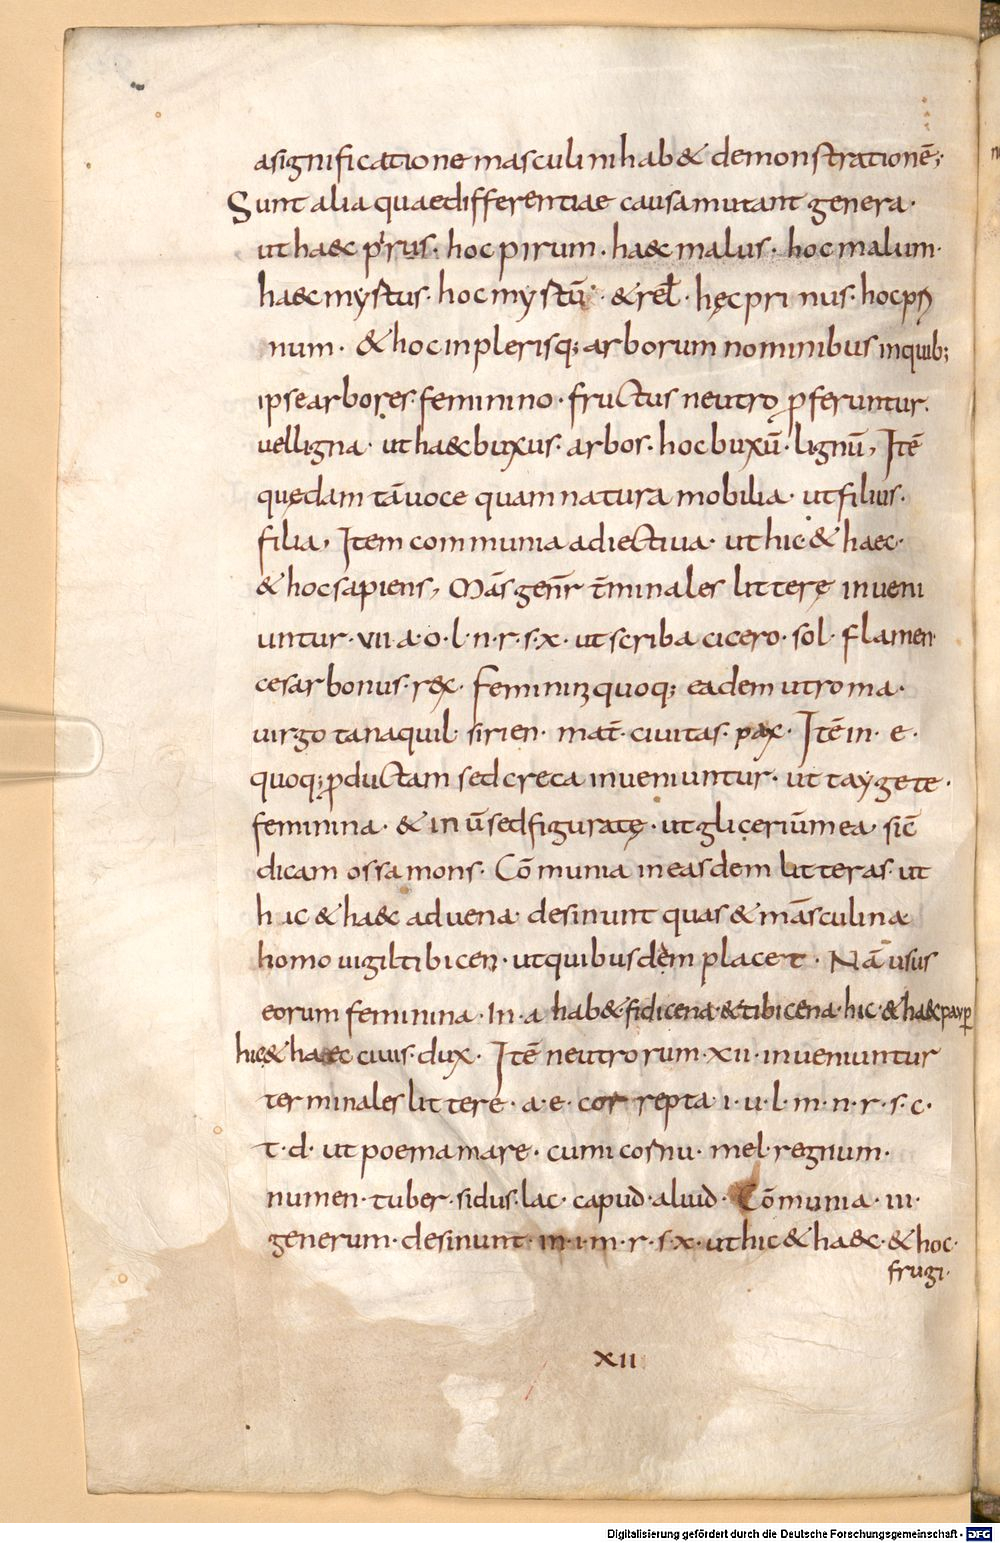 asignificatione masculini hab& demonstrationē;
Sunt alia quaedifferentiae causa mutant genera·
ut haec pirus· hoc pirum· haec malus· hoc malum·
haec mystus· hoc mystū· & rel̄· hęc pri nus· hoc
num· & hoc in plerisq; arborum nominibus in quib;
ipse arbores feminino· fructus neutro ꝓferuntur·
vel ligna· ut haec buxus· arbos· hoc buxū· lignū, Itē
quędam tā uoce quam natura mobilia· ut filius·
filia, Item communia adiectiua· ut hic & haec·
& hoc sapiens, Mās geñr t̄minales litterę inueni
untur· vii· a· o· l· n· r· s· x· ut scriba cicero· sol· flamen·
cesar bonus· rex· feminin quoq; eadem ut roma·
uirgo tanaquil· sirien· mat̄· ciuitas· pax· Itē in· e·
quoq; ꝓductam sed creca inueniuntur· ut taygete·
feminina· & in ū sed figuratę· ut gliceriū mea· sic̄
dicam ossa mons· Cōmunia in easdem litteras· ut
hic & haec aduena· desinunt quas & māsculina
homo uigil tibicen· ut quibusdem placet· Nā usus
eorum feminina· In· a hab& fidicena· & tibicena· hic· & haec paup̄
hic & haec ciuis· dux· Itē neutrorum· xii· inueniuntur
terminales littere· a· e· cor repta· i· u· l· m· n· r· s· c·
t· d· ut poema mare· cumi cornu· mel· regnum·
numen· tuber· sidus· lac· capud· aliud· Cōmunia· iii·
generum· desinunt· in· i· m· r· s· x· ut hic & haec· & hoc·
frugi·
xii
Digitalisierung gefördert durch die Deutsche Forschungsgemeinschaft · DFG